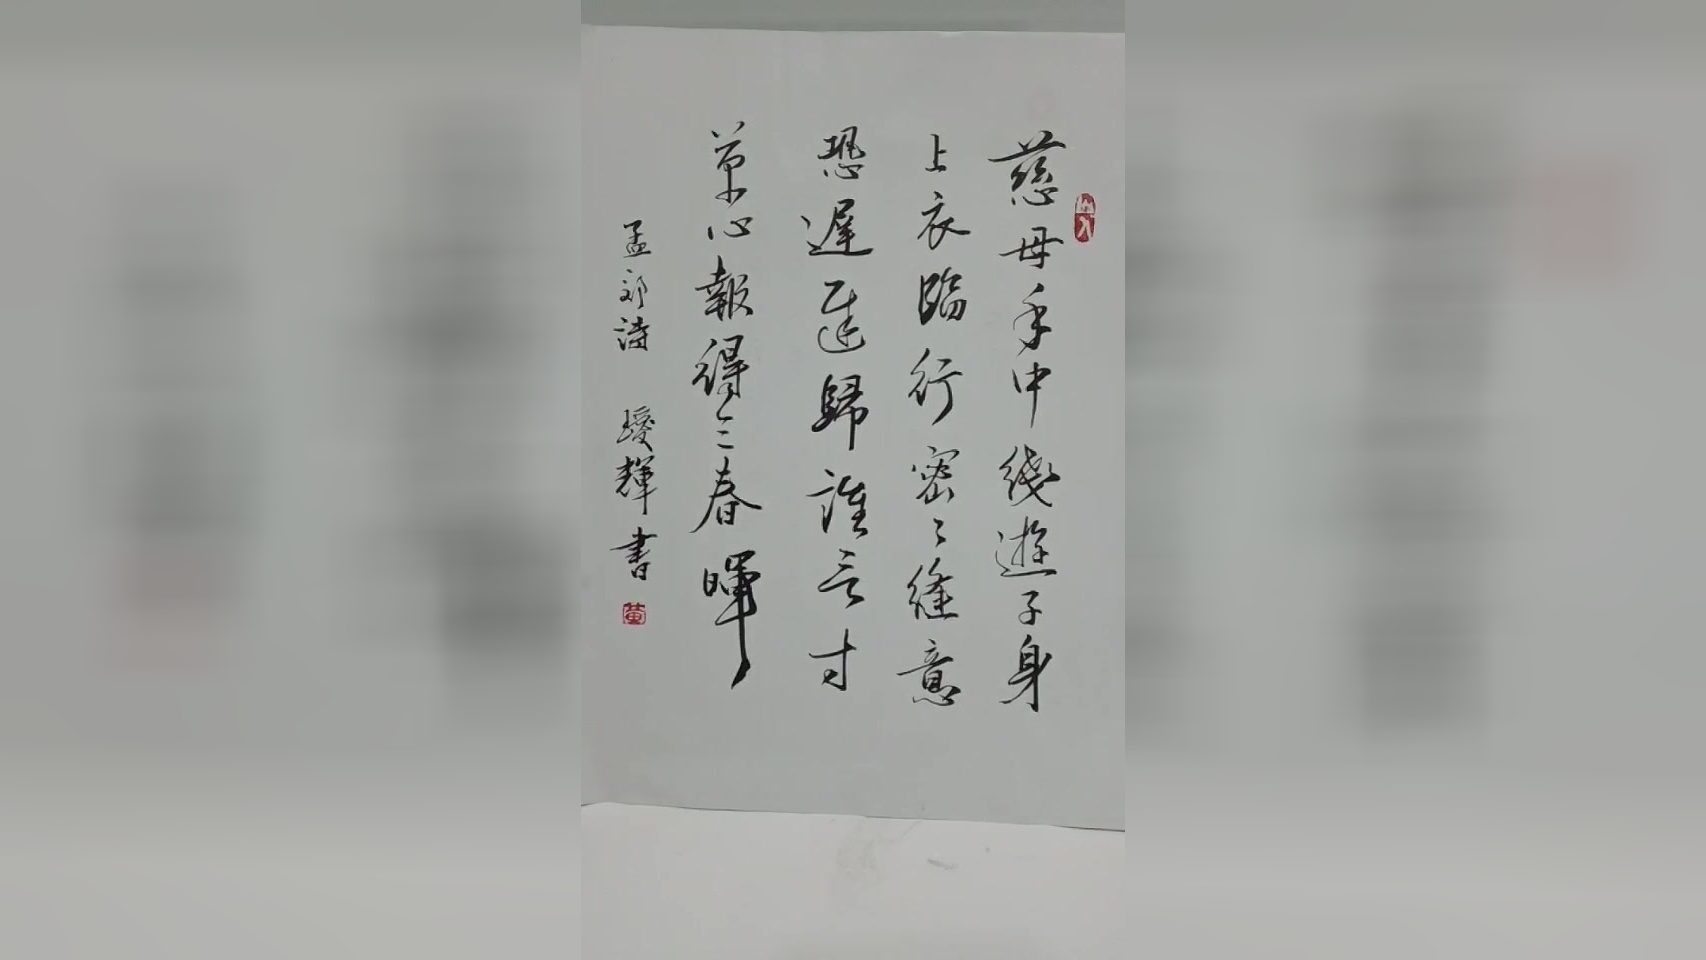 慈母手中綫遊子身
上衣臨行密〻縫意
恐遲遲歸誰言寸
草心報得三春暉
孟郊詩 瑷輝書
黄